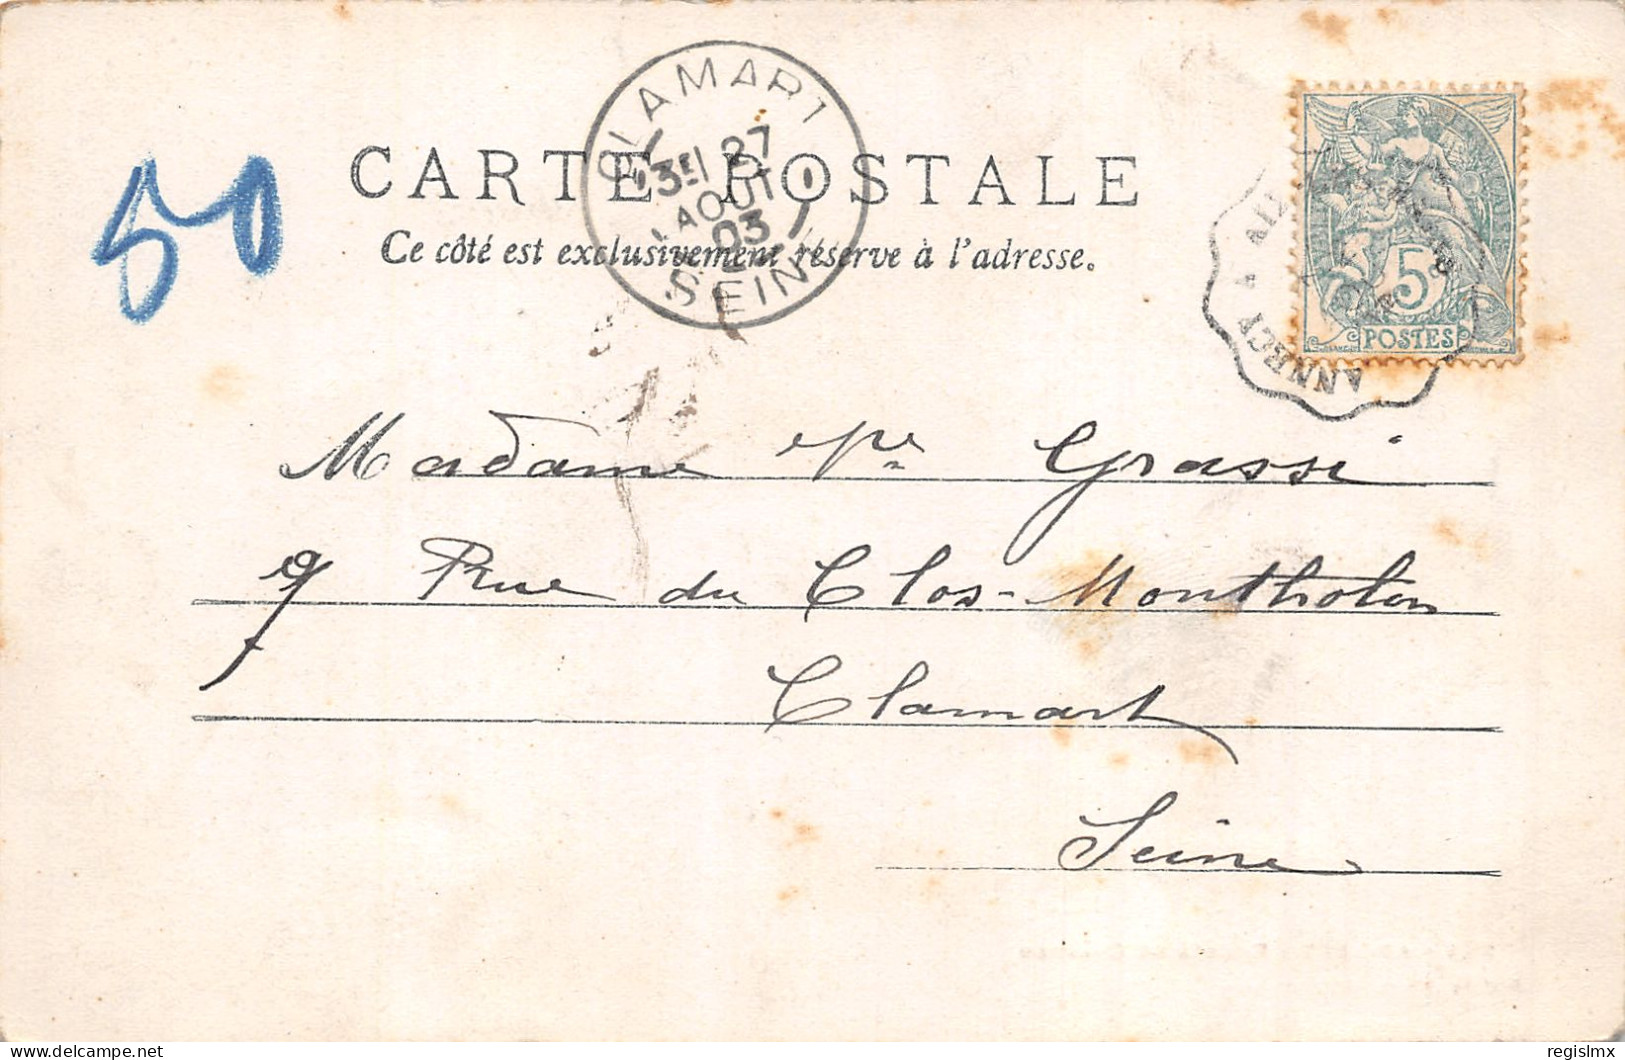 CARTE POSTALE
Ce côté est exclusivement réservé à l'adresse.
50
CLAMART
3E 27
AOUT
03
SEINE
ANNECY A AIX
5
POSTES
Madame Vve Grassi
9 Rue du Clos-Montholon
Clamart
Seine
© regislmx
delcampe.net